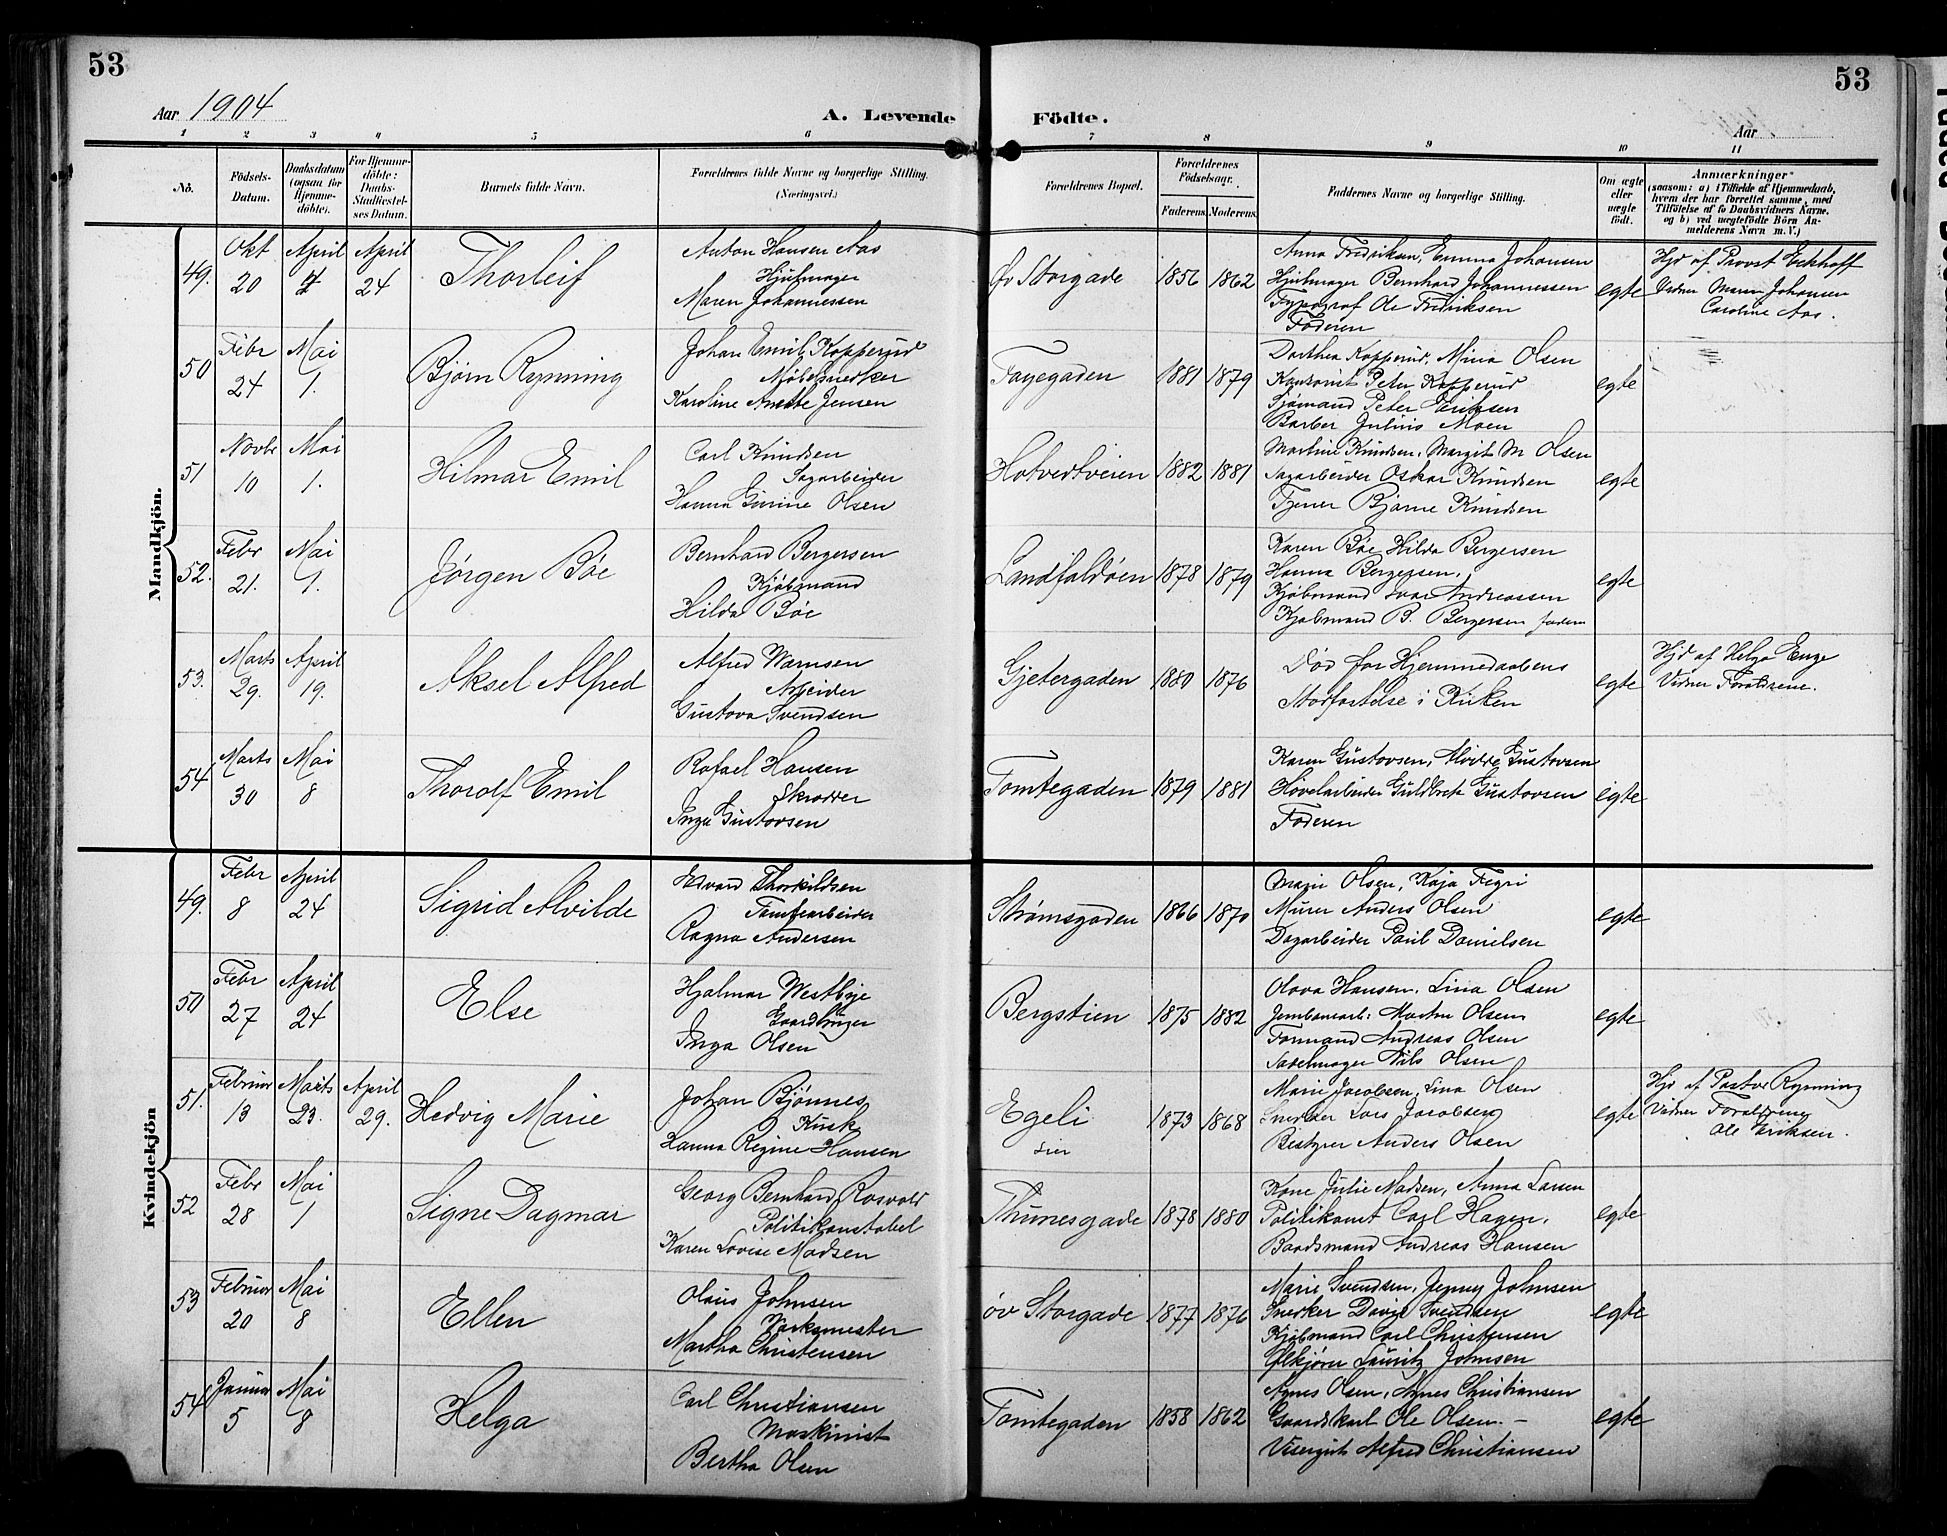 53
53
Aar 1904
A. Levende Födte.
Aar
1 2 3 4 5 6 7 8 9 10 11
No.
Födsels-
Datum.
Daabsdatum
(ogsaa for
Hjemme-
döbte).
For Hjemme-
döbte:
Daabs-
Stadfæstel-
ses Datum.
Barnets fulde Navn.
Forældrenes fulde Navne og borgerlige Stilling.
(Næringsvei.)
Forældrenes Bopæl.
Forældrenes
Födselsaar.
Faderens. Moderens.
Faddernes Navne og borgerlige Stilling.
Om ægte
eller
uægte
födt.
Anmærkninger
(saasom: a) i Tilfælde af Hjemmedaab,
hvem der har forrettet samme, med
Tilföielse af to Daabsvidners Navne.
og b) ved uægtefödte Börn An-
melderens Navn m. V.)
Mandkjön.
49.
Okt
20
April
April
24
Thorleif
Anton Hansen Aas
Hjulmager
Maren Johannessen
Øv Storgade
1856
1862
Anna Fredriksen, Emma Johansen
Hjulmager Bernhard Johannessen
Typograf Ole Fredriksen
Faderen
egte
Hjd af Provst Eckhoff
Vidner Maren Johansen
Caroline Aas.
50
Febr
24
Mai
1.
Bjørn Rynning
Johan Emil Kopperud
Møbelsnedker
Karoline Anette Jensen
Fayegaden
1881
1879
Dorthea Kopperud, Mina Olsen
Kontorist Peter Kopperud
Sjømand Peter Eriksen
Barber Julius Moen
egte
51
Novbr
10
Mai
1.
Hilmar Emil
Carl Knudsen
Sagarbeider
Hanna Gurine Olsen
Hotvedtveien
1882
1881
Martine Knudsen, Margit M Olsen
Sagarbeider Oskar Knudsen
Tjener Bjarne Knudsen
egte
52.
Febr
21.
Mai
1.
Jørgen Bøe
Bernhard Bergersen
Kjøbmand
Hilda Bøe
Landfaldøen
1878
1879
Karen Bøe, Hilda Bergersen
Hanna Bergersen.
Kjøbmand Ivar Andreassen
Kjøbmand B. Bergersen fadern
egte
53.
Marts
29.
April
19.
Aksel Alfred
Alfred Warnsen
Arbeider
Gustava Svendsen
Gjetergaden
1880
1876
Død før Hjemmedaabens
Stadfæstelse i Kirken
egte
Hjd af Helga Enge
Vidner Forældrene.
54
Marts
30
Mai
8
Thorolf Emil
Rafael Hansen
Skrædder
Inga Gustavsen
Tomtegaden
1879
1881
Karen Gustavsen, Alvilde Gustavsen
Høvelarbeider Guldbrek Gustavsen
Faderen
egte
Kvindekjön
49.
Febr
8
April
24
Sigrid Alvilde
Edvard Thorkildsen
Tomtearbeider
Ragna Andersen
Strømsgaden
1866
1870
Marie Olsen, Kaja Fegri
Murer Anders Olsen
Dagarbeider Paul Danielsen
egte
50
Febr
27
April
24
Else
Hjalmar Westbye
Gaardbruger
Inga Olsen
Bergstien
1875
1882
Olava Hansen, Lina Olsen
Jernbanearb: Morten Olsen
Formand Andreas Olsen
Sadelmager Nils Olsen
egte
51.
Februar
13
Marts
23.
April
29.
Hedvig Marie
Johan Bjønnes
Kusk
Hanna Regine Hansen
Egeli
Lier
1873
1868
Marie Jacobsen, Lina Olsen
Snedker Lars Jacobsen
Bestyrer Anders Olsen
egte
Hjd af Pastor Rynning
Vidner Forældrene
Ole Eriksen.
52
Febr
28
Mai
1
Signe Dagmar
Georg Bernhard Rosvold
Politikonstabel
Karen Lovise Madsen
Thunesgade
1878
1880
Kone Julie Madsen, Anna Larsen
Politikonst Carl Hagen,
Baadsmand Andreas Hansen
egte
53
Februar
20
Mai
8
Ellen
Olaus Johnsen
Værksmester
Martha Christensen
Øv Storgade
1877
1876
Marie Svendsen, Jenny Johnsen
Snedker David Svendsen
Kjøbmand Carl Christensen
Ølkjører Lauritz Johnsen
egte
54
Januar
5
Mai
8
Helga
Carl Christiansen
Maskinist
Bertha Olsen
Tomtegaden
1858
1862
Agnes Olsen, Agnes Christiansen
Gaardskarl Ole Olsen. –
Visergut Alfred Christiansen
egte